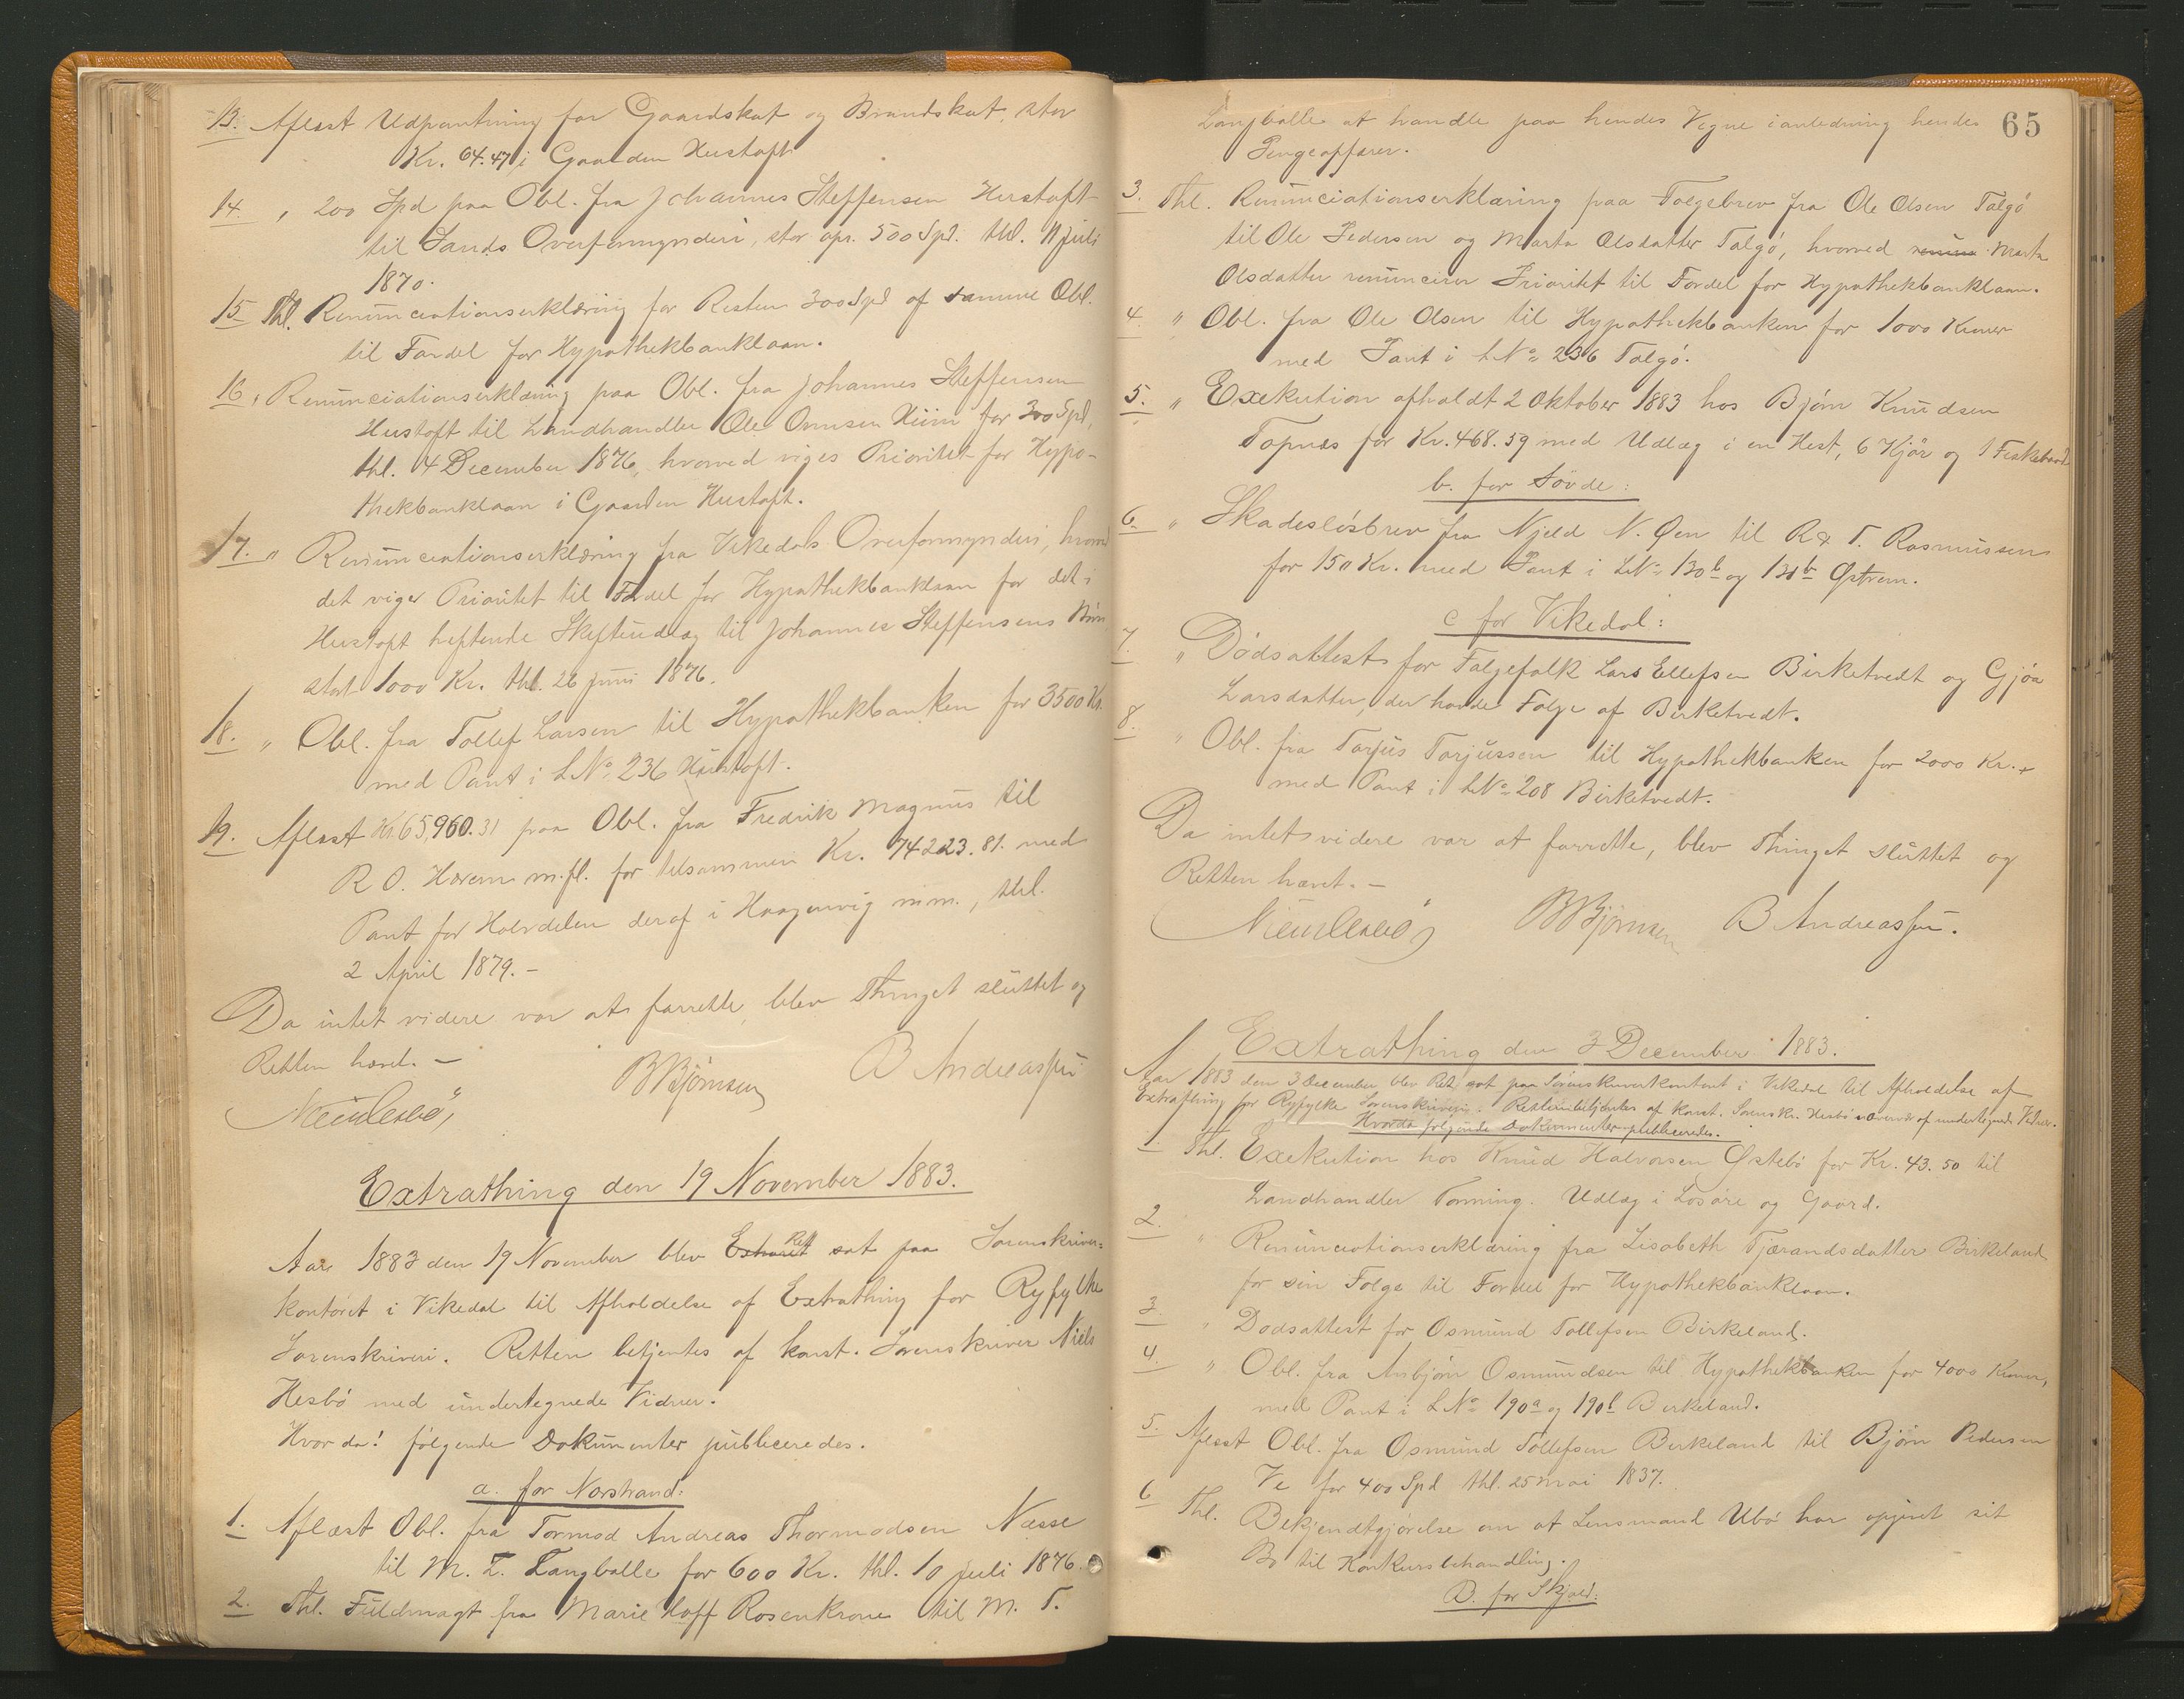 13. Aflæst Udpantning for Gaardskat og Brandskat, stor
Kr. 64.47 i Gaarden Hustoft
14. " 200 Spd paa Obl. fra Johannes Steffensen Hustoft
til Sands Overformynderi, stor opr. 500 Spd. thl. 11 juli
1870.
15 Thl. Renunciationserklæring for Resten 300 Spd af samme Obl.
til Fordel for Hypothekbanklaan.
16 " Renunciationserklæring paa Obl. fra Johannes Steffensen
Hustoft til Landhandler Ole Omnsen for 300 Spd,
thl. 4 December 1876, hvorved viges Prioritet for Hypo-
thekbanklaan i Gaarden Hustoft.
17. " Renunciationserklæring fra Vikedals Overformynderi, hvorved
det viger Prioritet til Fordel for Hypothekbanklaan for det i
Hustoft heftende Skifteudlæg til Johannes Steffensens Börn
stort 1000 Kr. thl. 26 juni 1876.
18. " Obl. fra Tollef Larsen til Hypothekbanken for 3500 Kr.
med Pant i LNo 236 Hustoft.
19. Aflæst Kr. 65,960.31 paa Obl. fra Fredrik Magnus til
R O. Hærem m.fl. for tilsammen Kr. 74223.81. med
Pant for Halvdelen deraf i Haagenvig m.m., thl.
2 April 1879. -
Da intet videre var at forrette, blev Thinget sluttet og
Retten hævet. -
BBjörnsen B Andreassen
Extrathing den 19 November 1883.
Aar 1883 den 19 November blev Extraret Rett sat paa Sorenskriver-
kontoret i Vikedal til Afholdelse af Extrathing for Ryfylke
Sorenskriveri. Retten betjentes af konst. Sorenskriver Niels
Hesbö med undertegnede Vidner.
Hvorda! følgende Dokumenter publiceredes.
a. for Norstrand:
1. Aflæst Obl. fra Tormod Andreas Thormodsen Næsse
til M. T. Langballe for 600 Kr. thl. 10 juli 1876.
2. Thl. Fuldmagt fra Marie Hoff Rosenkrone til M. T.
65
Langballe at handle paa hendes Vegne i anledning hendes
Pengeaffærer.
3. Thl. Renunciationserklæring paa Folgebrev fra Ole Olsen Talgö
til Ole Pedersen og Marta Olsdatter Talgö, hvorved renun Marta
Olsdatter renuncierer Prioritet til Fordel for Hypothekbanklaan.
4. " Obl. fra Ole Olsen til Hypothekbanken for 1000 Kroner
med Pant i LNo 236 Talgö.
5. " Exekution afholdt 2 Oktober 1883 hos Bjørn Knudsen
Topnæs for Kr. 468.59 med Udlæg i en Hest, 6 Kjör og 1 Fiskebaad
b. for Sövde:
6. " Skadeslösbrev fra Njeld N. Øen til R & T. Rasmussen
for 150 Kr. med Pant i LNo 130b og 131b Østrem.
c for Vikedal:
7. " Dödsattest for Folgefolk Lars Ellefsen Birketvedt og Gjöa
Larsdatter, der havde Folge af Birketvedt.
8. " Obl. fra Torjus Torjussen til Hypothekbanken for 2000 Kr.
med Pant i LNo 208 Birketvedt.
Da intet videre var at forrette, blev Thinget sluttet og
Retten hævet. -
BBjörnsen B Andreassen.
Extrathing den 3 December 1883.
Aar 1883 den 3 December blev Ret sat paa Sorenskriverkontoret i Vikedal til Afholdelse af
Extrathing for Ryfylke Sorenskriveri. Retten betjentes af konst. Sorenskr. Hesbö overvær af undertegnede Vidner.
Hvorda følgende Dokumenter publiceredes.
1. Thl. Exekution hos Knud Halvorsen Østebö for Kr. 43.50 til
Landhandler Tonning. Udlæg i Losöre og Gaard.
2. " Renunciationserklæring fra Lisabeth Tjærandsdatter Birkeland
for sin Folge til Fordel for Hypothekbanklaan.
3. " Dodsattest for Osmund Tollefsen Birkeland.
4. " Obl. fra Asbjørn Osmundsen til Hypothekbanken for 4000 Kroner,
med Pant i LNo 190a og 190b Birkeland.
5. Aflæst Obl. fra Osmund Tollefsen Birkeland til Bjørn Pedersen
Ve for 400 Spd thl. 25 mai 1837.
6 Thl. Bekjendtgjörelse om at Lensmand Ubö har opgivet sit
Bo til Konkursbehandling.
B. for Skjold: